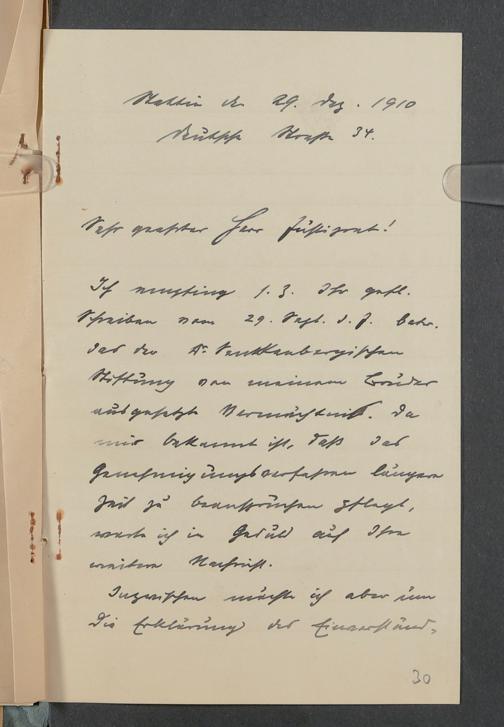 Stettin den 29. Dez. 1910
Deutsche Straße 34.
Sehr geehrter Herr Justizrat!
Ich empfing s. Z. Ihr gefl.
Schreiben vom 29. Sept. d. J. betr.
das der Dr. Senckenbergischen
Stiftung von meinem Bruder
ausgesetzte Vermächtnis. Da
mir bekannt ist, daß das
Genehmigungsverfahren längere
Zeit zu beanspruchen pflegt,
warte ich in Geduld auf Ihre
weitere Nachricht.
Inzwischen möchte ich aber um
die Erklärung des Einverständ-
30